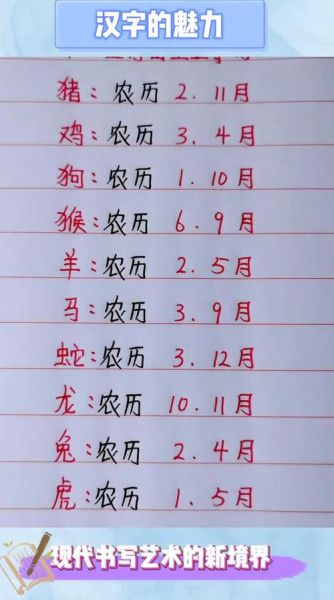 汉字的魅力
猪：农历 2．11月
鸡：农历 3．4月
狗：农历 1．10月
猴：农历 6．9月
羊：农历 2．5月
马：农历 3．9月
蛇：农历 3．12月
龙：农历 10．11月
兔：农历 2．4月
虎：农历 1．5月
现代书写艺术的新境界